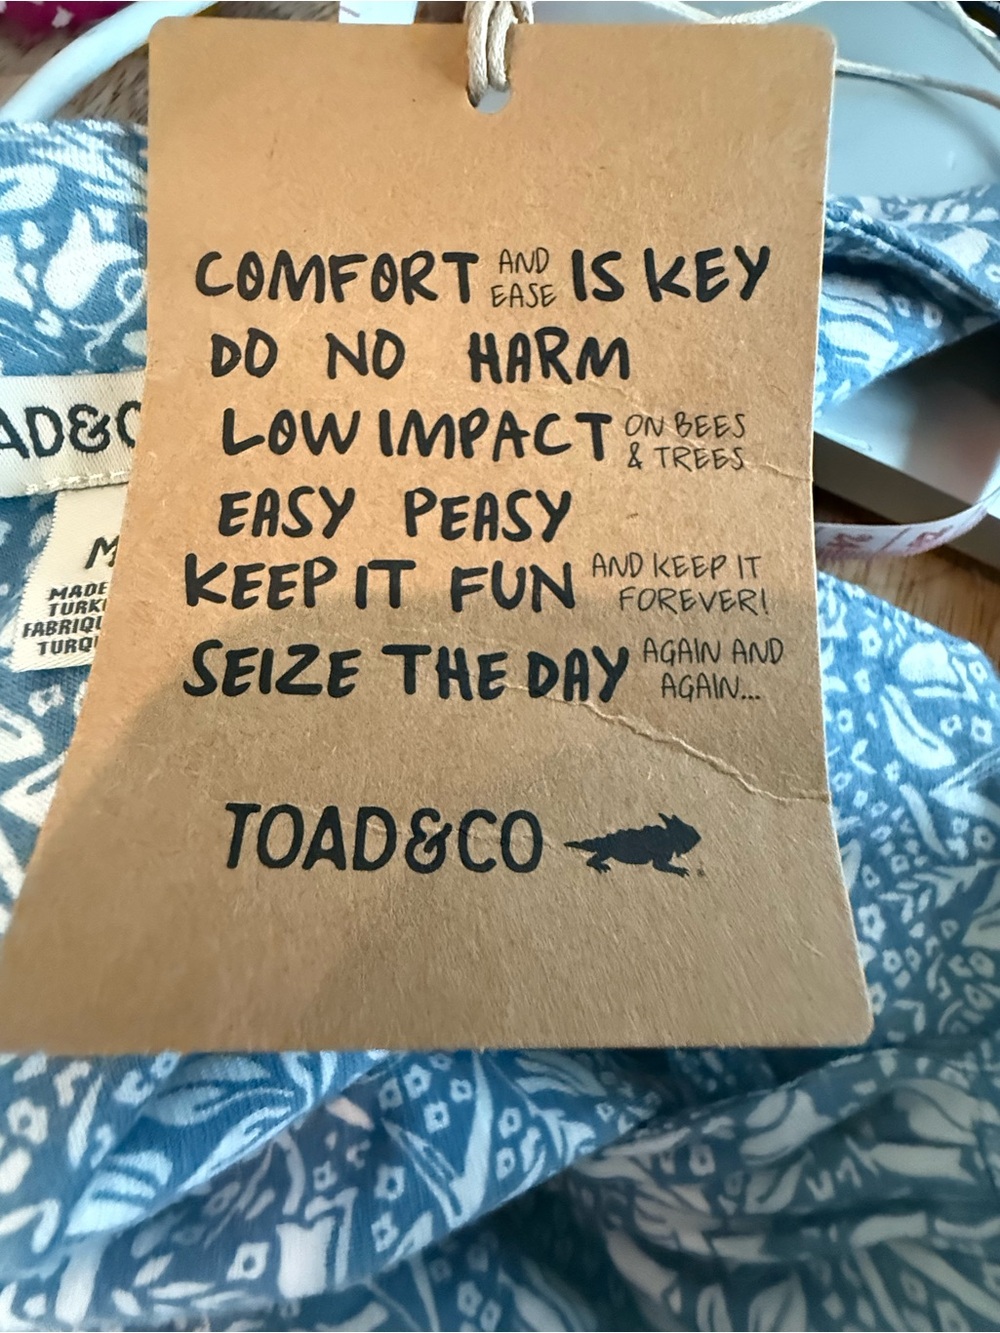 COMFORT AND EASE IS KEY
DO NO HARM
LOW IMPACT ON BEES & TREES
EASY PEASY
KEEP IT FUN AND KEEP IT FOREVER!
SEIZE THE DAY AGAIN AND AGAIN...
TOAD&CO
AD&C
M
MADE
TURK
FABRIQU
TURQ